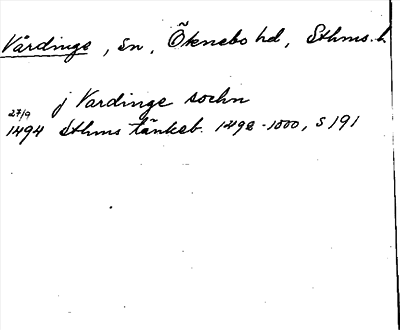 Vårdinge, sn, Öknebo hd, Sthms. l
j Vardinge sochn
27/9
1494 Sthms tänkeb. 1492-1500, s 191